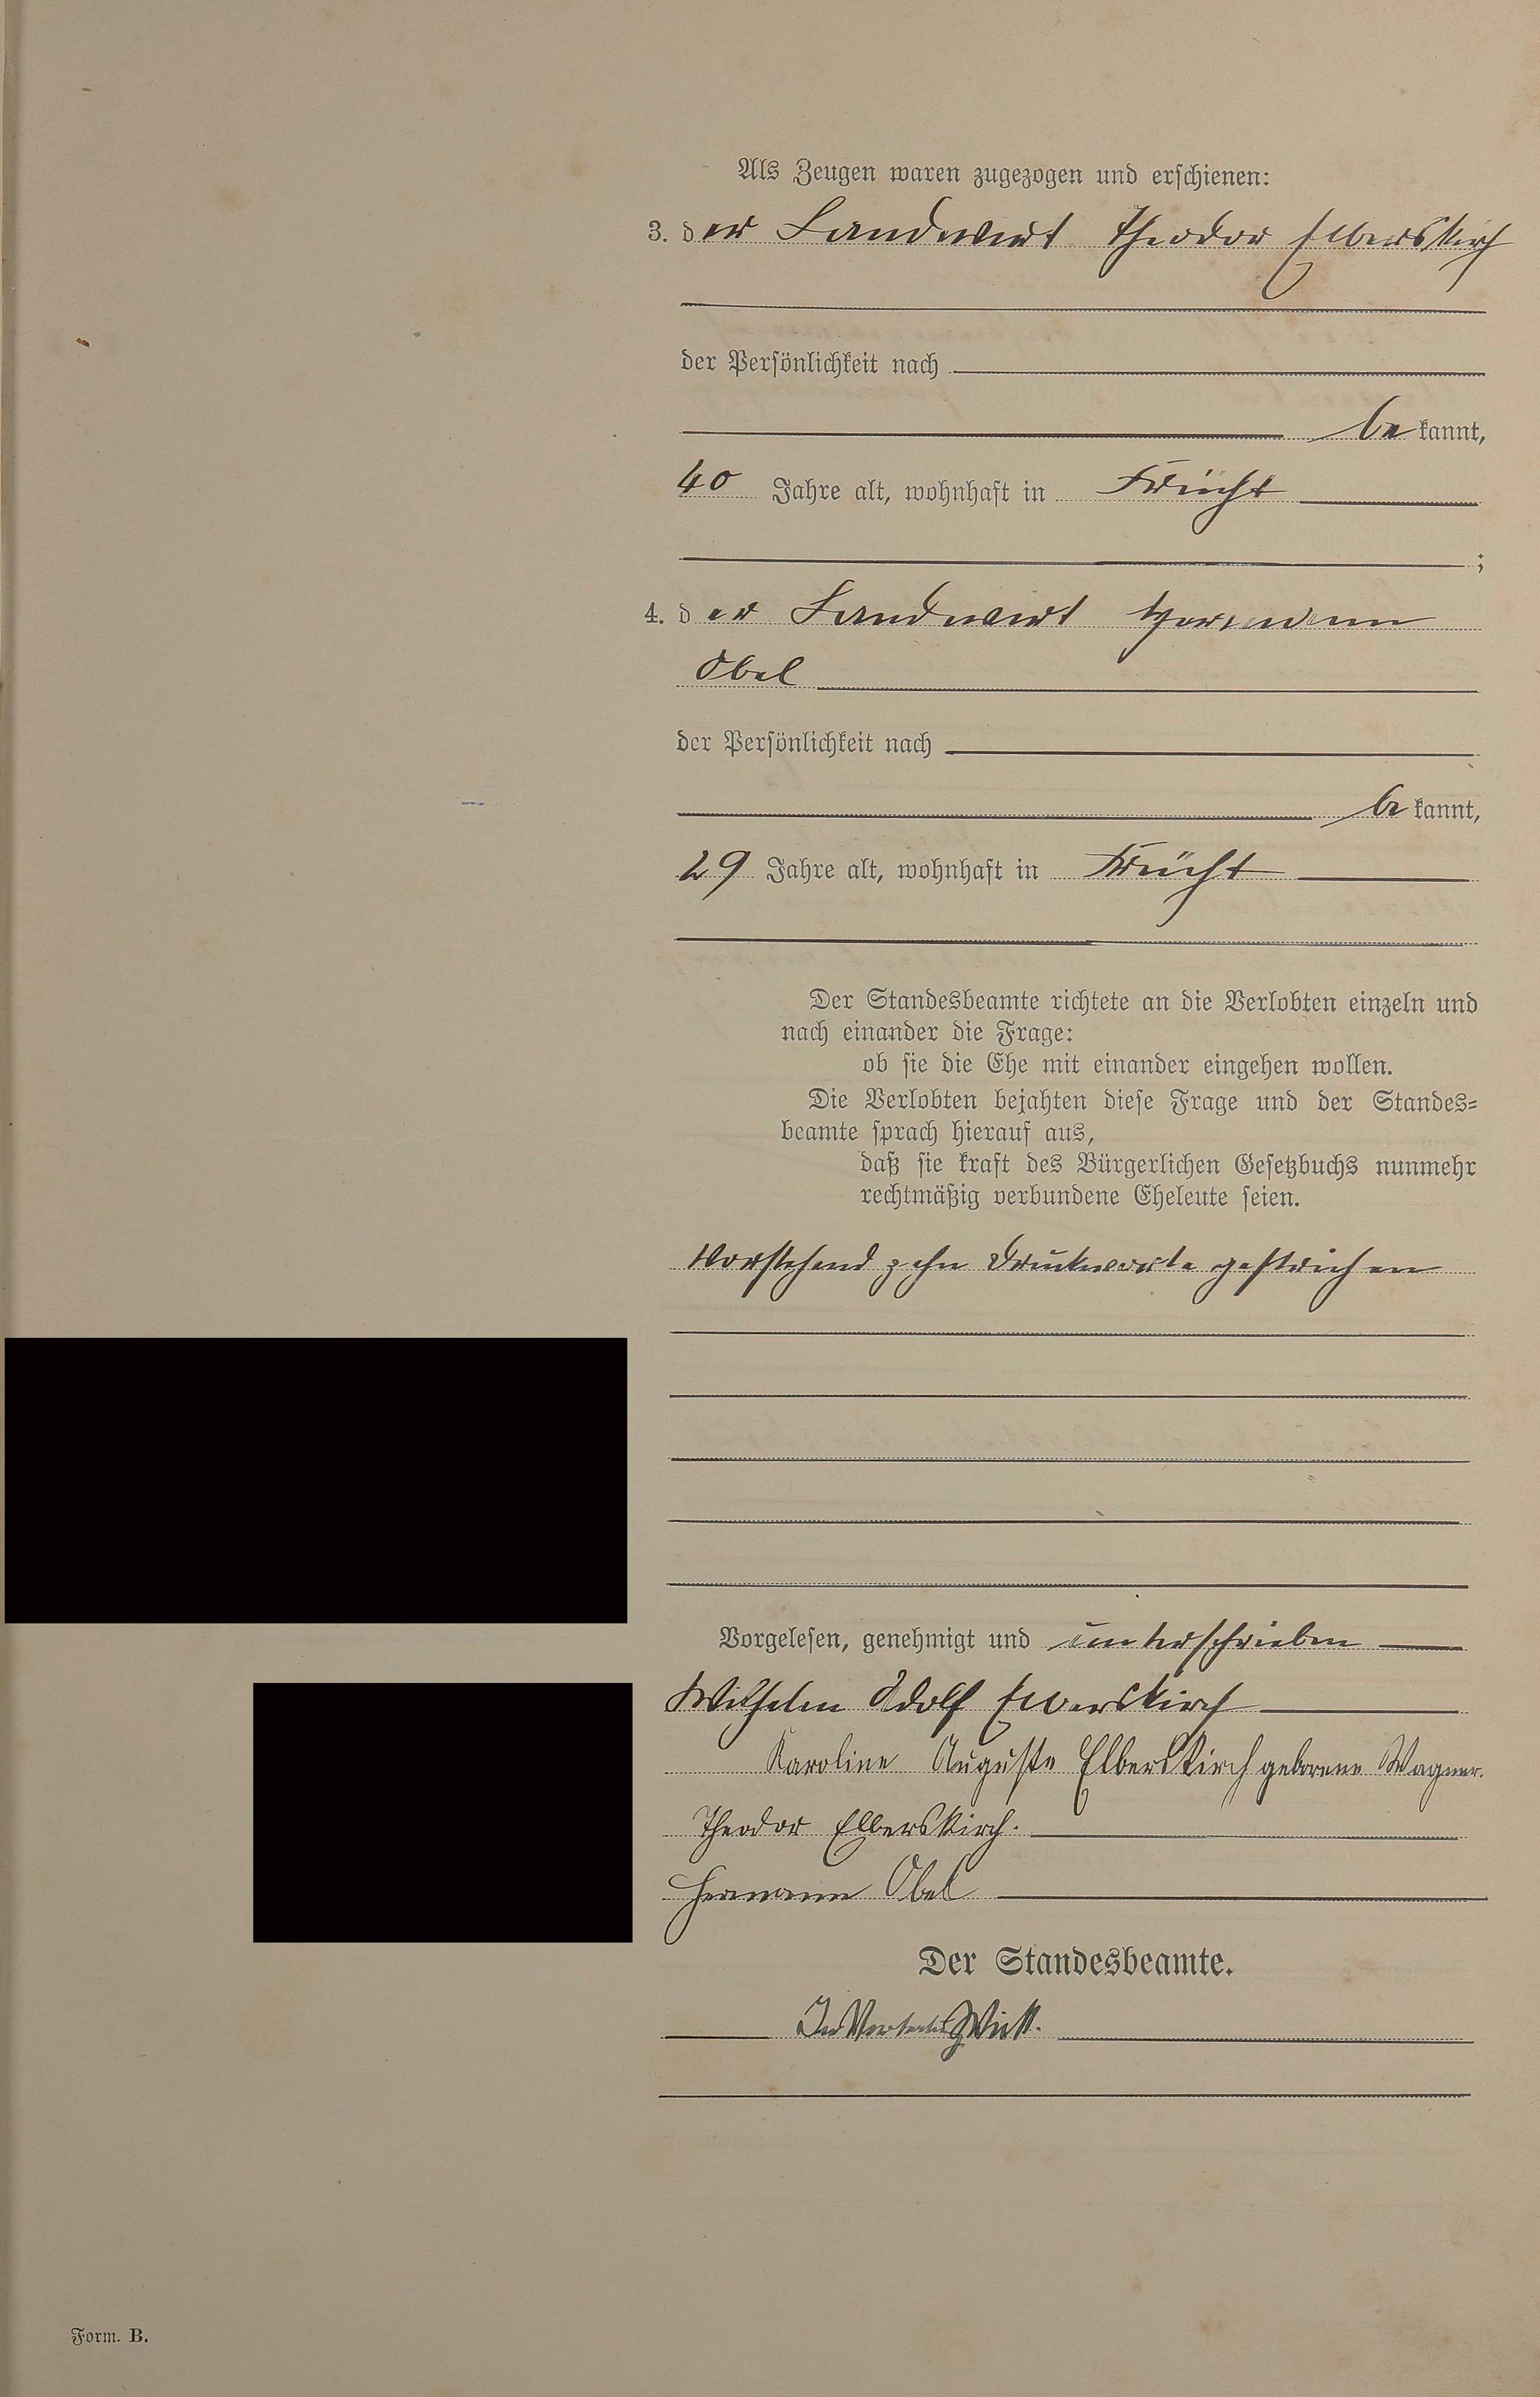 Als Zeugen waren zugezogen und erschienen:
3. der Landwirt Theodor Elberskirch
der Persönlichkeit nach
bekannt,
40 Jahre alt, wohnhaft in Frücht
;
4. der Landwirt Hermann
Obel
der Persönlichkeit nach
bekannt,
29 Jahre alt, wohnhaft in Frücht
Der Standesbeamte richtete an die Verlobten einzeln und
nach einander die Frage:
ob sie die Ehe mit einander eingehen wollen.
Die Verlobten bejahten diese Frage und der Standes=
beamte sprach hierauf aus,
daß sie kraft des Bürgerlichen Gesetzbuchs nunmehr
rechtmäßig verbundene Eheleute seien.
Vorstehend zehn Druckworte gestrichen
Vorgelesen, genehmigt und unterschrieben
Wilhelm Adolf Elberskirch
Karoline Auguste Elberskirch geborene Wagner.
Theodor Elberskirch.
Hermann Obel
Der Standesbeamte.
In
Form. B.